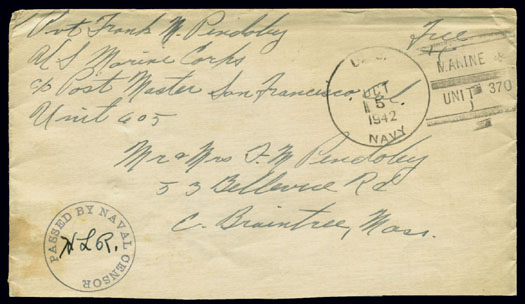 Pvt Frank M. Pendoley
Free
U S Marine Corps
c/o Post Master San Francisco
Unit 605
U.S.
OCT
5
1942
NAVY
MARINE
UNIT 370
Mr & Mrs F. M Pendoley
53 Bellevue Rd
Braintree, Mass.
PASSED BY NAVAL CENSOR
H L R.